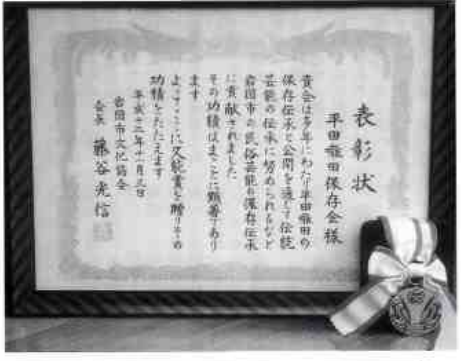 表彰状
平田雅田保存会様
貴会は多年にわたり平田雅田の
保存伝承と公開を通して伝統
芸能の伝承に努められるなど
岩国市の民俗芸能の保存伝承
に貢献されました
その功績はまことに顕著であり
ます
よってここに文能賞を贈りその
功績をたたえます
平成十二年十一月三日
岩国市文化協会
会長 藤谷光信